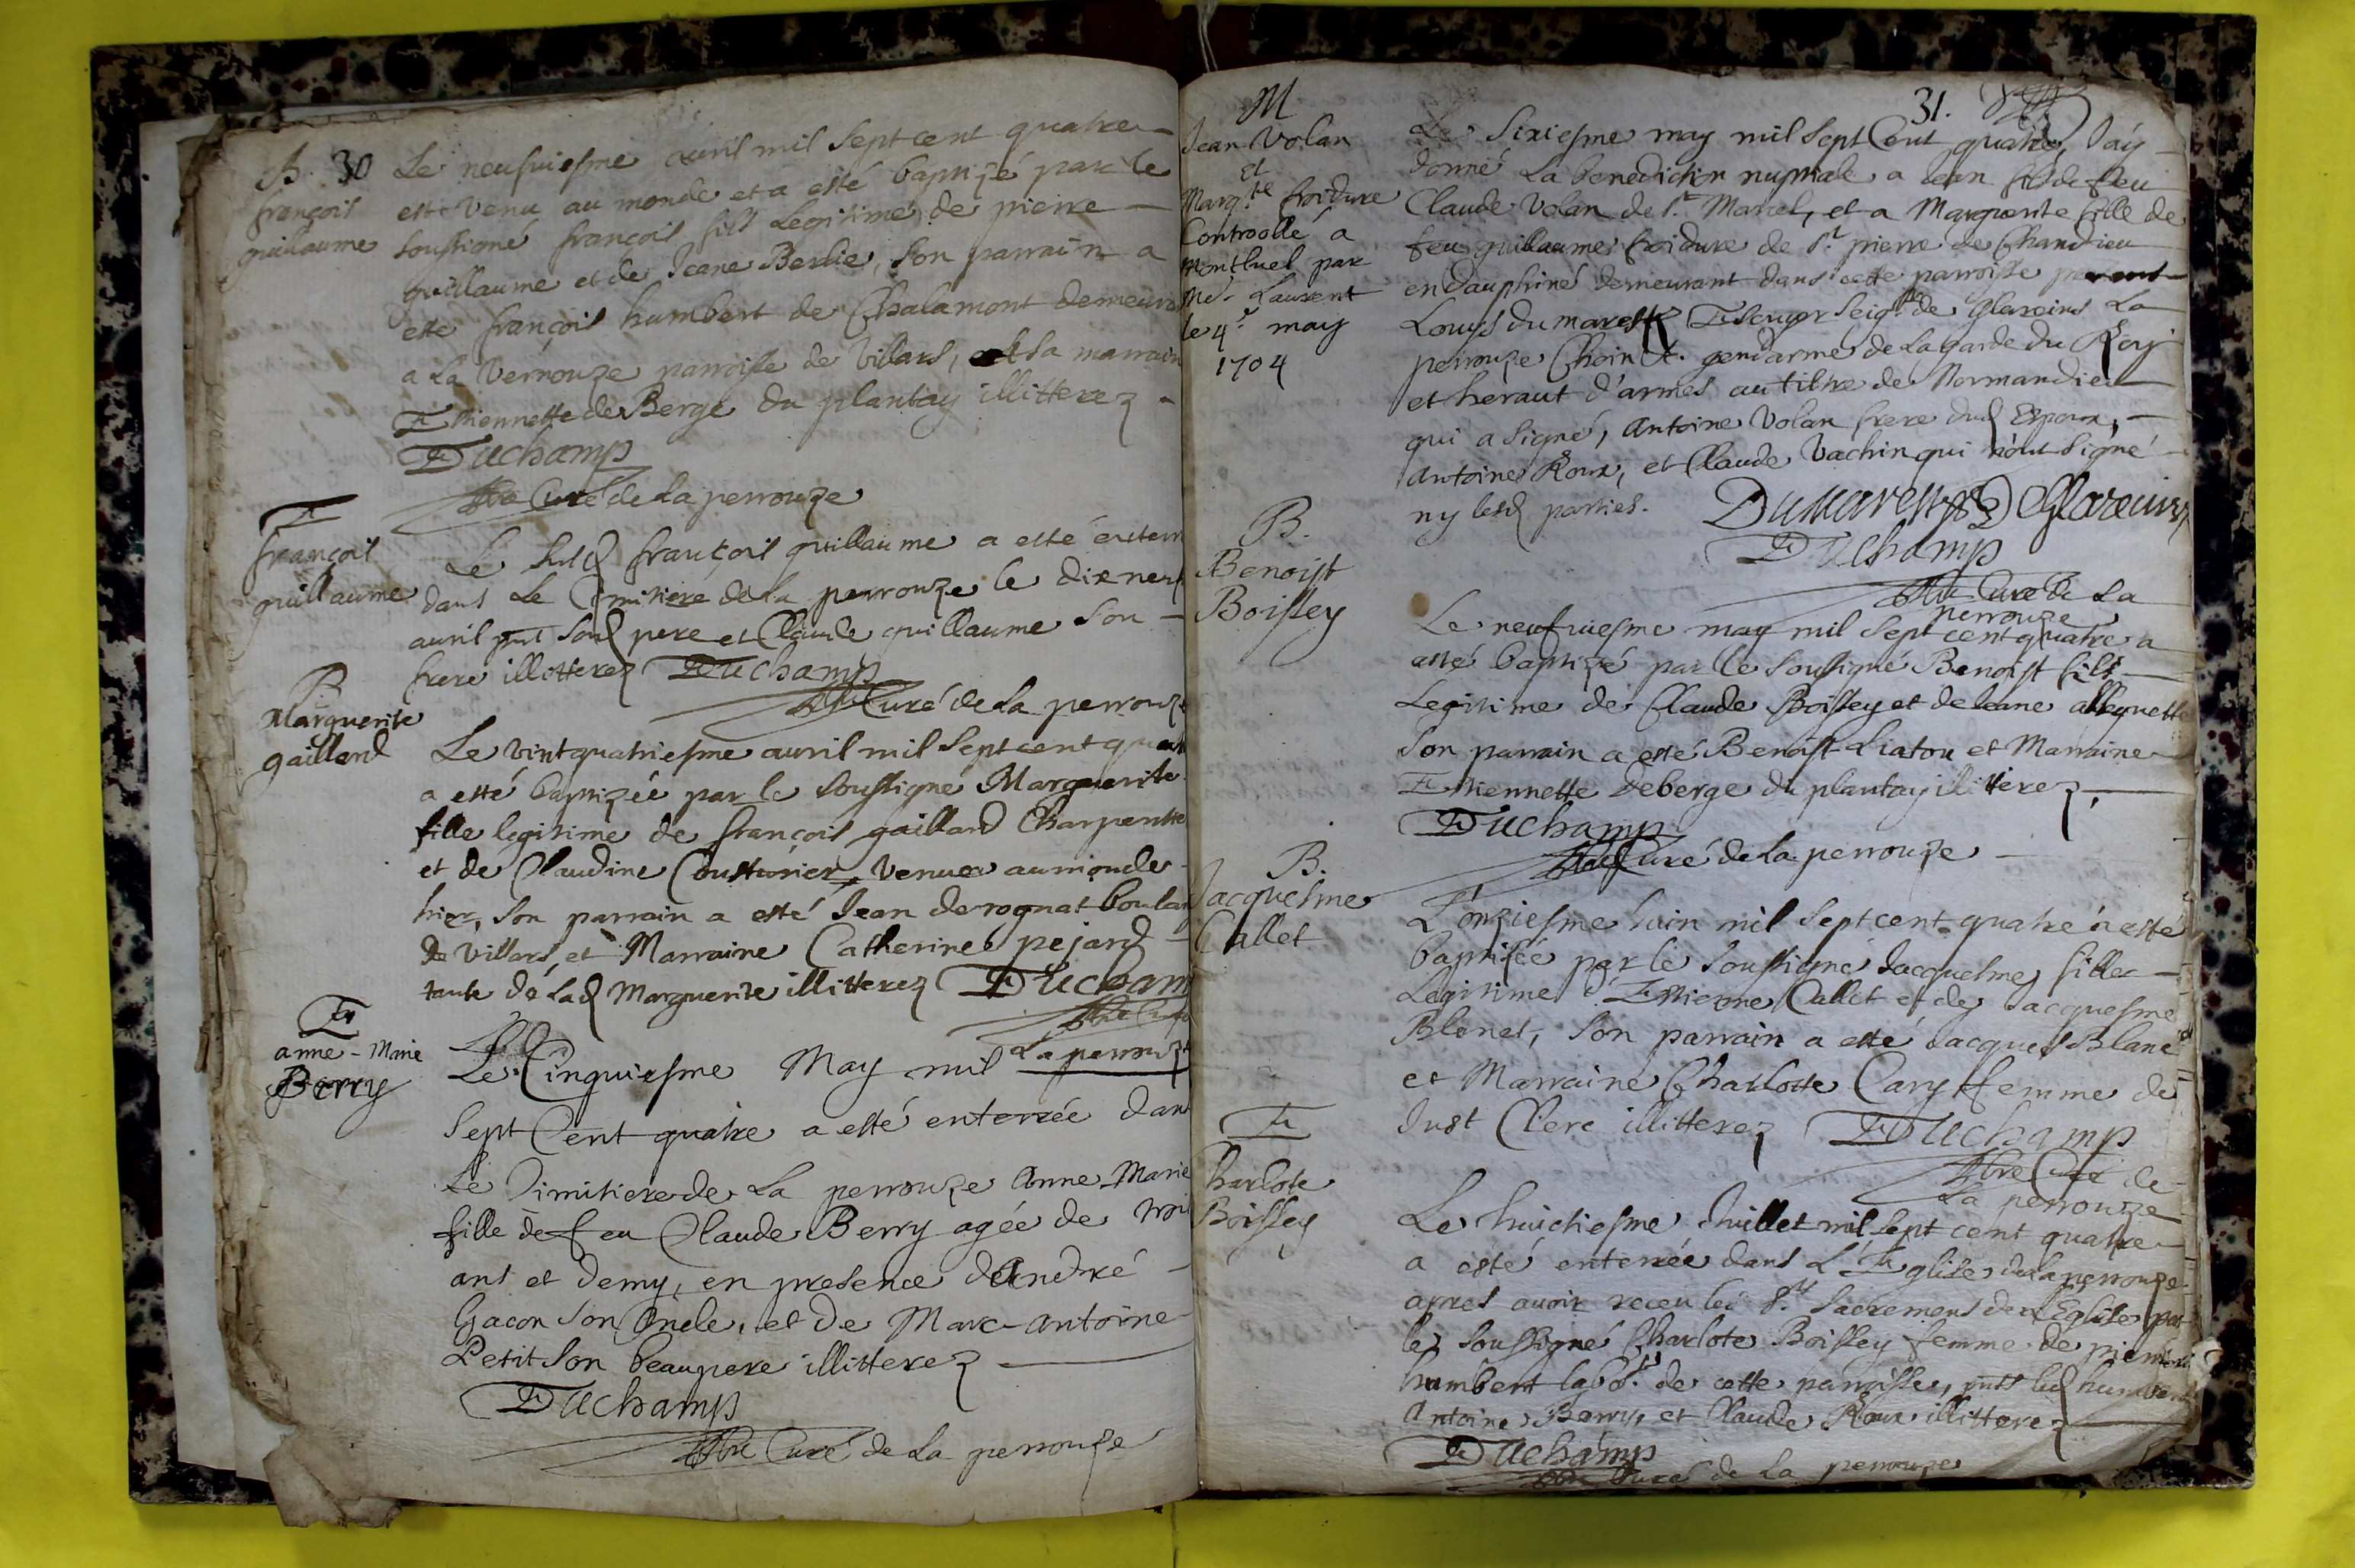 B. 30
françois
guillaume
Le neufuiesme auril mil sept cent quatre
est venu au monde et a esté baptizé par le
soussigné françois fils Legitime de pierre
guillaume et de Jeane Berlie, son parrain a
esté françois humbert de Chalamont demeurā
a La Verrouze parroisse de Villars, et sa marrain
Estiennette de Berge du plantay illitterez
Duchamp
pbre Curé de La perrouze
E
françois
guillaume
Le susd françois guillaume a esté enterr
dans Le Cimitiere de La perrouze le dixneuf
auril pnt sond pere et Claude guillaume son
frere illitterez Duchamp
pbre Curé de La perrouze
B
Marguerite
gaillard
Le vint quatriesme auril mil sept cent quatr
a esté baptizée par le soussigné Marguerite
fille legitime de françois gaillard Charpentie
et de Claudine Cousturier venue au monde
hier, son parrain a esté Jean derognat boulan
de Villars, et Marraine Catherine pejard
tante de Lad Marguerite illitterez Duchamp
pbre Curé
La perrouze
E
anne-Marie
Berry
Le Cinquiesme May mil
Sept Cent quatre a esté enterrée dans
Le Cimitiere de La perrouze Anne-Marie
fille de feu Claude Berry agée de troi
ans et demy, en presence d'André
Gacon son Oncle, et de Marc-Antoine
Petit son beaupere illitterez
Duchamp
pbre Curé de La perrouze
31.
M
Jean Volan
et
Marg.te froidure
Controollé a
Montluel par
Me. Laurent
le 4e. may
1704
Le Sixiesme may mil sept Cent quatre, J'ay
donné La benediction nuptiale a Jean fils de feu
Claude Volan de S.t Marcel, et a Marguerite fille de
feu guillaume froidure de S.t pierre de Chandieu
en dauphiné demeurant dans cette parroisse present
Louys du marest Seig.r de Glareins La
perrouze Choin &. gendarme de La garde du Roy
et heraut d'armes au tiltre de Normandie
qui a signé, Antoine Volan frere dud Espoux,
Antoine Roux, et Claude Vachin qui n'ont signé
ny lesd parties. Dumarest De Glareins
Duchamp
pbre Curé de La
perrouze
B.
Benoist
Boissey
Le neufuiesme may mil sept cent quatre a
esté baptizé par le soussigné Benoist fils
Legitime de Claude Boissey et de Jeane alleynette
son parrain a esté Benoist Liatou et Marraine
Estiennette deberge du plantay illitterez
Duchamp
pbre Curé de La perrouze
B.
Jacquesme
Callet
L'onziesme Juin mil sept cent quatre a esté
baptisée par le soussigné Jacquesme fille
Legitime d'Estienne Callet et de Jacquesme
Blenet, son parrain a esté Jacques Blanc
et Marraine Charlotte Cary femme de
Just Clerc illitterez Duchamp
pbre Curé de
La perrouze
E
Charlote
Boissey
Le huictiesme Juillet mil sept cent quatre
a esté enterrée dans L'Eglise de La perrouze
apres auoir receu les S.ts Sacremens de l'Eglise par
le soussigné Charlote Boissey femme de pierre
humbert lab.r de cette parroisse, pnts led humbert
Antoine Berry, et Claude Roux illitterez
Duchamp
pbre Curé de La perrouze